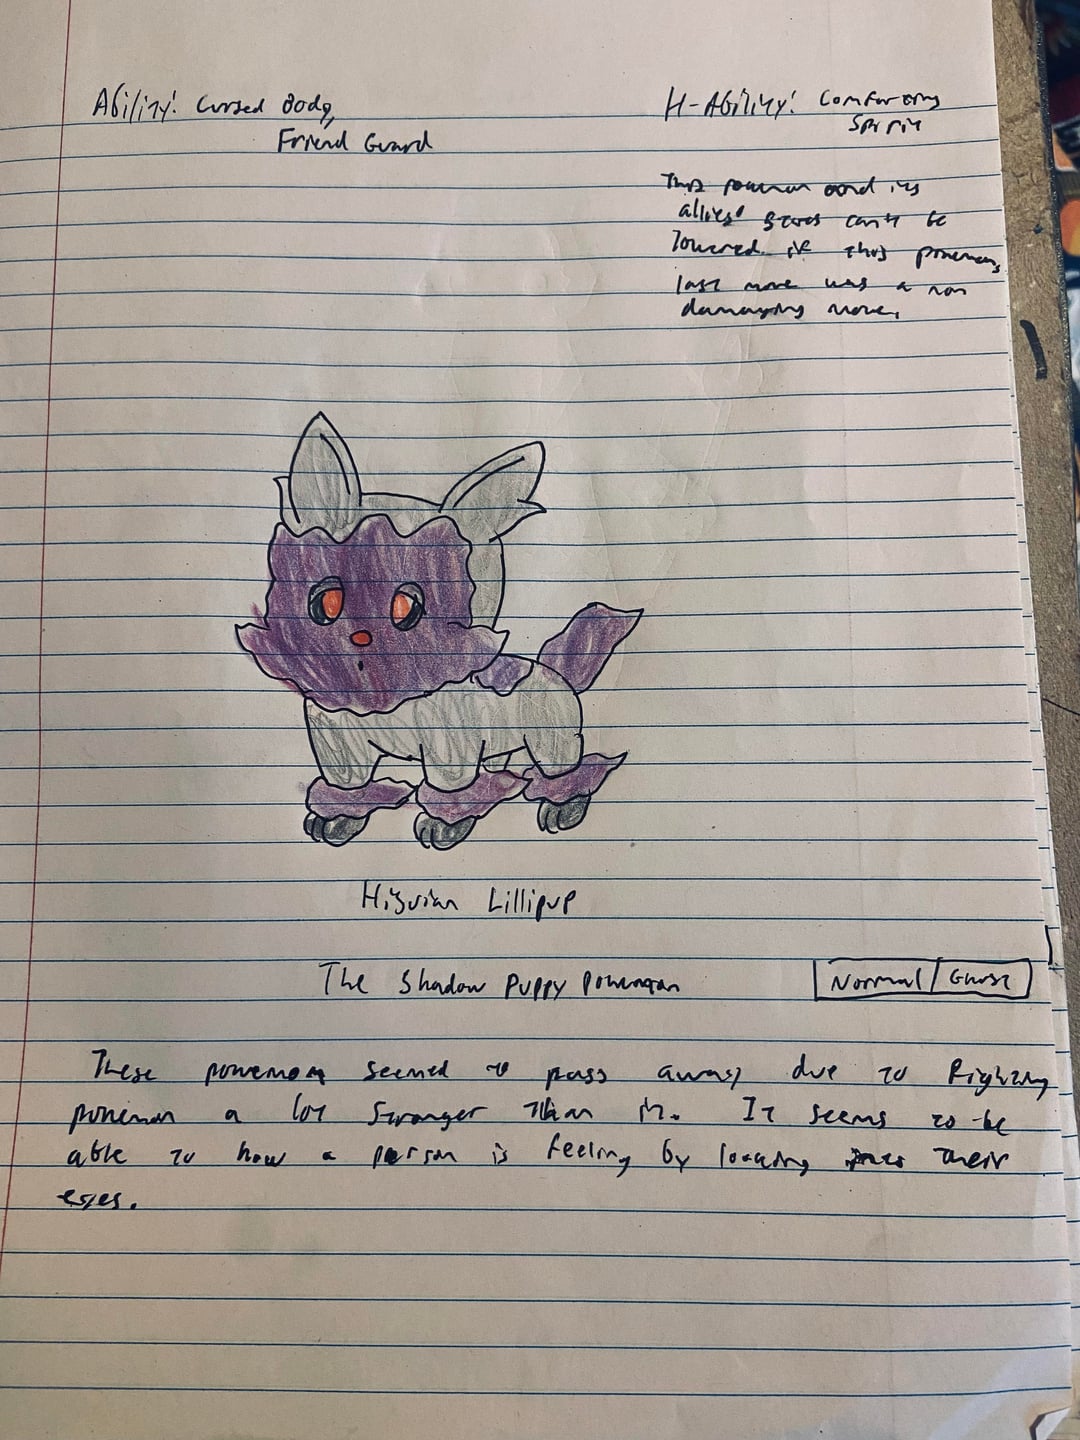 Ability: Cursed Body,
Friend Guard
H-Ability: Comforting
Spirit
This pokemon and its
allies' stats can't be
lowered if this pokemons
last move was a non
damaging move.
Hisuian Lillipup
The Shadow Puppy Pokemon
Normal/Ghost
These pokemon seemed to pass away due to fighting
pokemon a lot stronger than it. It seems to be
able to how a person is feeling by looking into their
eyes.